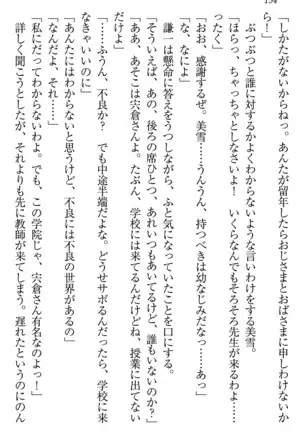 134
「しかたがないからねっ。あんたが留年したらおじさまとおばさまに申しわけないから！」
ぶつぶつと誰に対するかよくわからないような言いわけをする美雪。
「ほらっ、ちゃっちゃとしなさいよ！　いくらなんでもそろそろ先生が来るわよ……ったく」
「おお、感謝するぜ。美雪……うんうん、持つべきは幼なじみだなぁ……あっ」
「な、なによ」
謙一は懸命に答えをうつしながら、ふと気になっていたことを口にする。
「そういえば、あの、後ろの席ひとつ、あれいつもあいてるけど、誰もいないのか？」
「ああ、あそこは宍倉さんよ。たぶん、学校には来てるんだけどね、授業に出てないだけで」
「……ふうん、不良か？　でも中途半端だよな。どうせサボるんだったら、学校に来なきゃいいのに」
「あんたにはわからないと思うけど、不良には不良の世界があるの」
「なんだよ、それ……」
「私にだってわからないわよ。でも、この学院じゃ、宍倉さん有名なのよっ！」
詳しく聞こうとしたが、それよりも先に教師が来てしまう。遅れたというのにのん